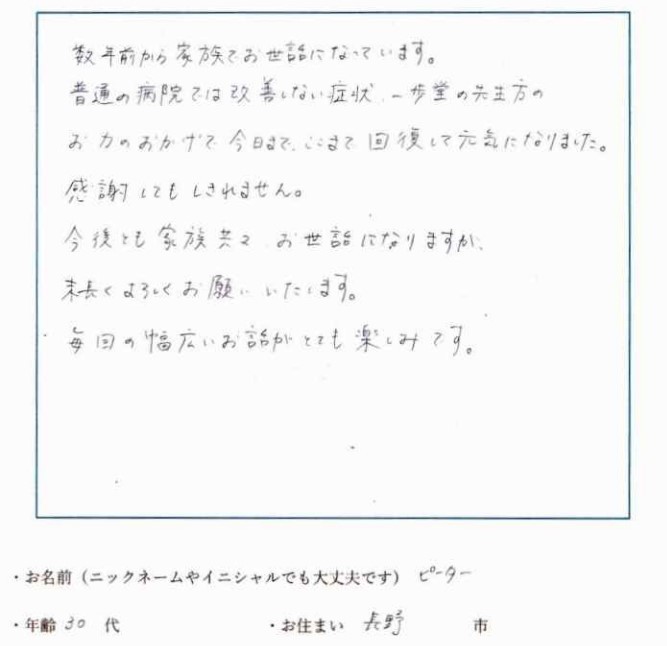 数年前から家族でお世話になっています。
普通の病院では改善しない症状、一歩堂の先生方の
お力のおかげで今日まで、ここまで回復して元気になりました。
感謝してもしきれません。
今後とも家族共々、お世話になりますが、
末長くよろしくお願いいたします。
毎回の幅広いお話がとても楽しみです。
・お名前（ニックネームやイニシャルでも大丈夫です） ピーター
・年齢 30 代 ・お住まい 長野 市